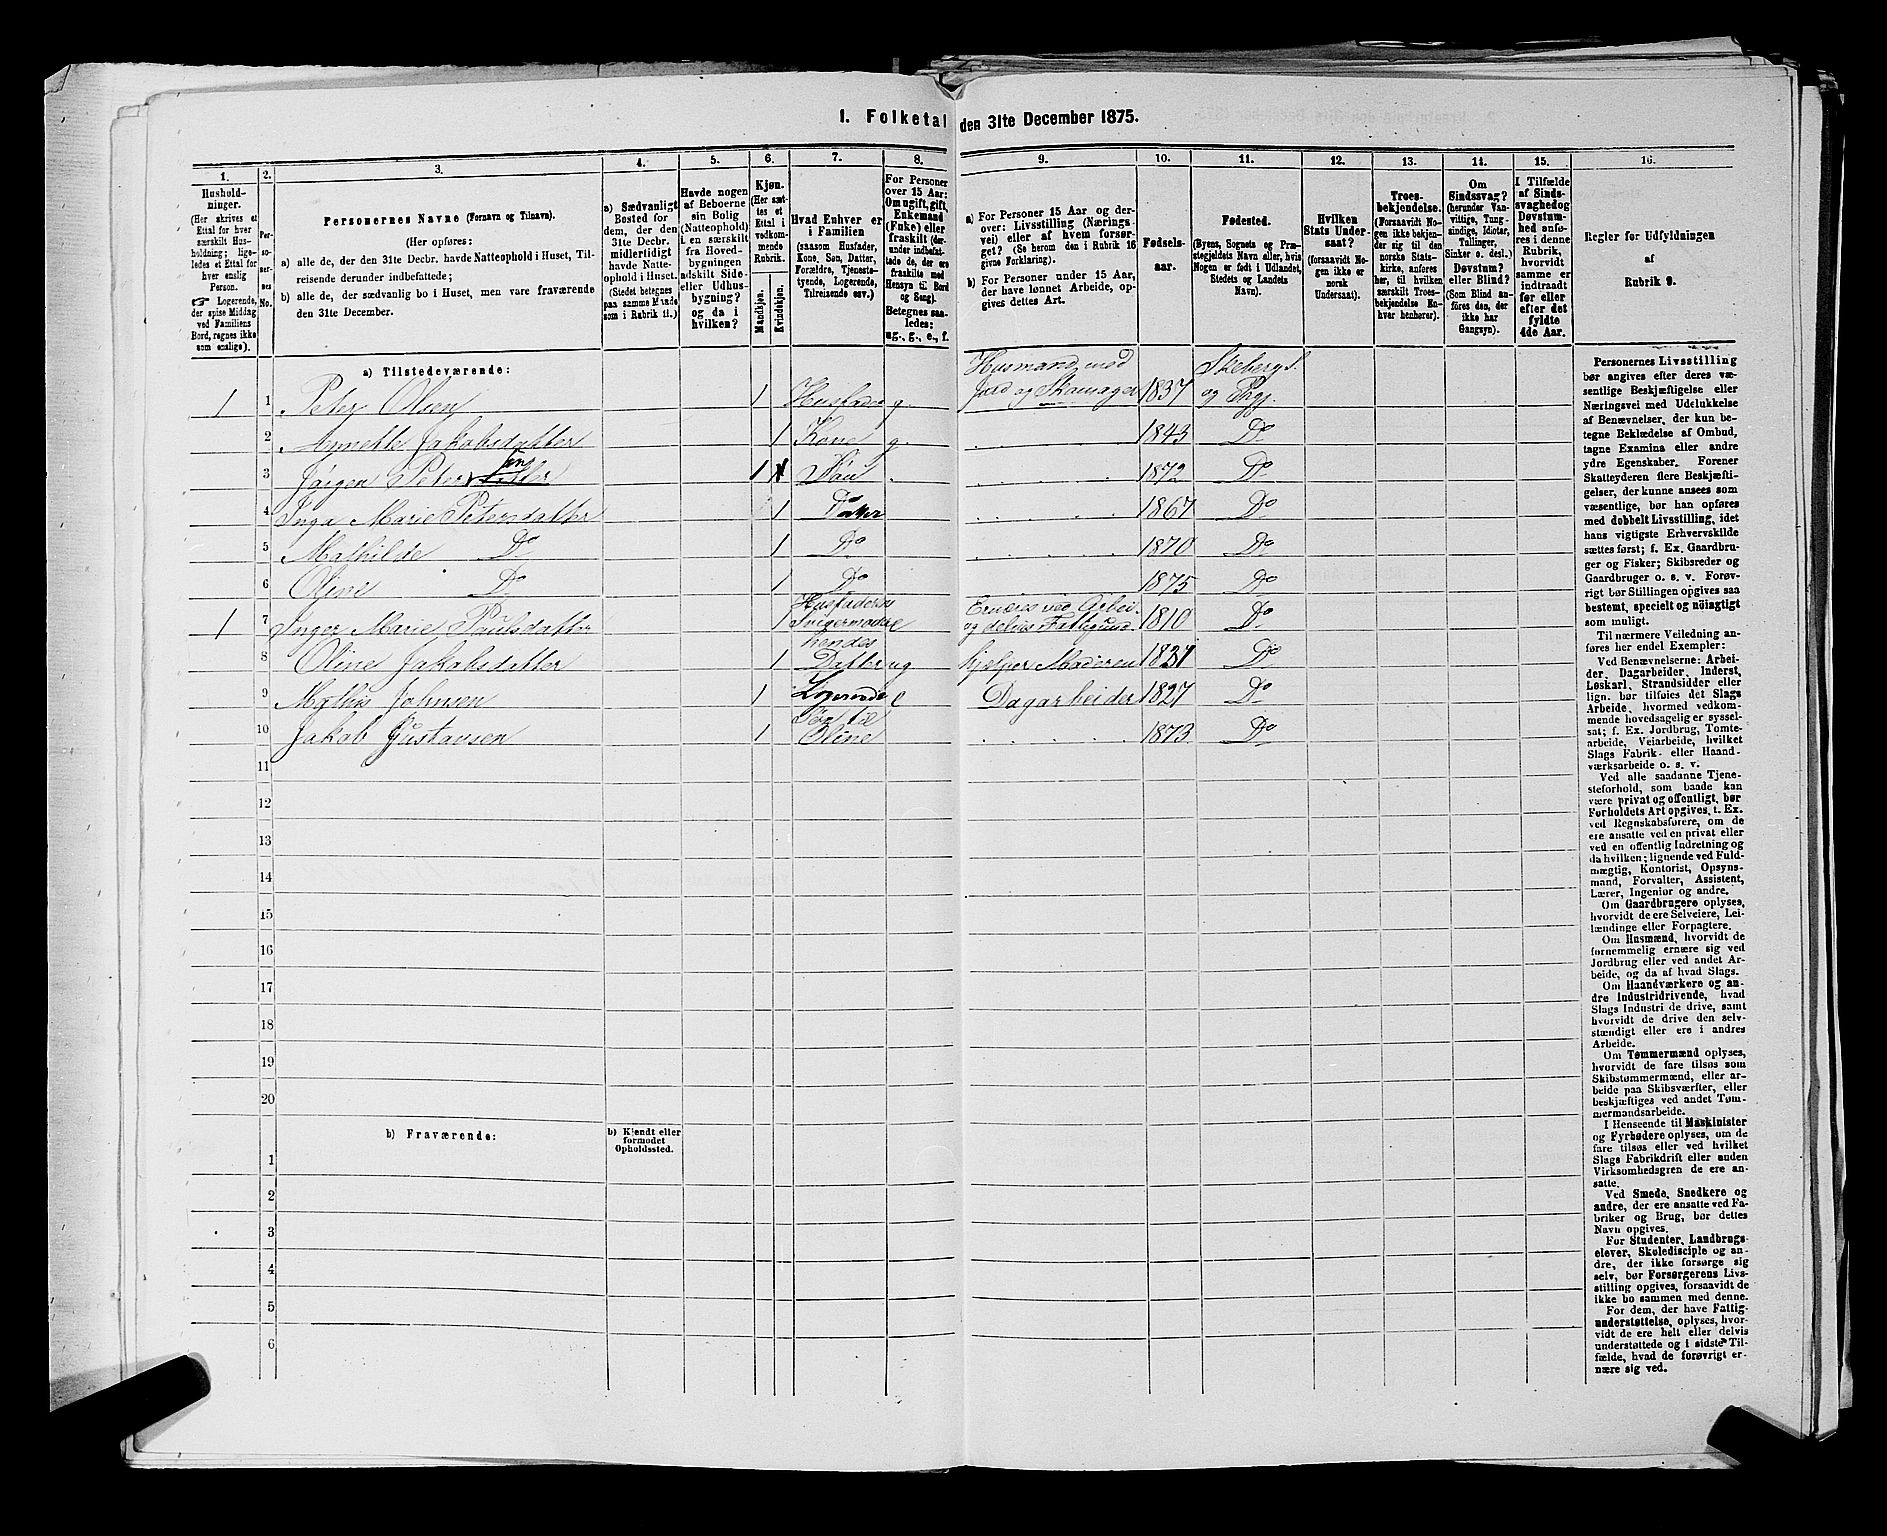 1. Folketal den 31te December 1875.
1. 2. 3. 4. 5. 6. 7. 8. 9. 10. 11. 12. 13. 14. 15. 16.
Hushold-
ninger.
(Her skrives et
Ettal for hver
særskilt Hus-
holdning; lige-
ledes et Ettal for
hver enslig
Person.
☞ Logerende,
der spise Middag
ved Familiens
Bord, regnes ikke
som enslige).
Per-
so-
ner-
nes
No.
Personernes Navne (Fornavn og Tilnavn).
(Her opføres:
a) alle de, der den 31te Decbr. havde Natteophold i Huset, Til-
reisende derunder indbefattede;
b) alle de, der sædvanlig bo i Huset, men vare fraværende
den 31te December.
a) Sædvanligt
Bosted for
dem, der den
31te Decbr.
midlertidigt
havde Natte-
ophold i Huset.
(Stedet betegnes
paa samme Maade
som i Rubrik 11.)
Havde nogen
af Beboerne
sin Bolig
(Natteophold)
i en særskilt
fra Hoved-
bygningen
adskilt Side-
eller Udhus-
bygning?
og da i
hvilken?
Kjøn.
(Her sæt-
tes et
Ettal i
vedkom-
mende
Rubrik.
Mandkjøn.
Kvindekjøn.
Hvad Enhver er
i Familien
(saasom Husfader,
Kone, Søn, Datter,
Forældre, Tjeneste-
tyende, Logerende,
Tilreisende osv.)
For Personer
over 15 Aar:
Om ugift, gift,
Enkemand
(Enke) eller
fraskilt (der-
under indbefat-
tede de, der ere
fraskilte med
Hensyn til Bord
og Seng).
Betegnes saa-
ledes:
ug., g., e., f.
a) For Personer 15 Aar og der-
over: Livsstilling (Nærings-
vei) eller af hvem forsør-
get? (Se herom den i Rubrik 16
givne Forklaring).
b) For Personer under 15 Aar,
der have lønnet Arbeide, op-
gives dettes Art.
Fødsels-
aar.
Fødested.
(Byens, Sognets og Præ-
stegjeldets Navn eller, hvis
Nogen er født i Udlandet,
Stedets og Landets
Navn).
Hvilken
Stats Under-
saat?
(forsaavidt No-
gen ikke er
norsk
Undersaat).
Troes-
bekjendelse.
(Forsaavidt No-
gen ikke bekjen-
der sig til den
norske Stats-
kirke, anføres
her, til hvilken
særskilt Troes-
bekjendelse En-
hver henhører).
Om
Sindssvag?
(herunder Van-
vittige, Tung-
sindige, Idioter,
Tullinger,
Sinker o. desl.)
Døvstum?
eller Blind?
(Som Blind an-
føres den, der
ikke har
Gangsyn).
I Tilfælde
af Sinds-
svaghed og
Døvstum-
hed anfø-
res i denne
Rubrik,
hvorvidt
samme er
indtraadt
før eller
efter det
fyldte
4de Aar.
Regler for Udfyldningen
af
Rubrik 9.
a) Tilstedeværende:
1 1 Peter Olsen 1 Husfader g Husmand med Jord og 1837 Skeberg S. og Prgj.
2 Annette Jakobsdatter 1 Kone g. 1843 Do
3 Jörgen Petersen 1 Sön 1872 Do
4 Inga Marie Petersdatter 1 Datter 1867 Do
5 Mathilde Do 1 Do 1870 Do
6 Oline Do 1 Do 1875 Do
1 7 Inger Marie Paulsdatter 1 Husfaderns Svigermoder e Ernæres ved Arbei. og delvis Fattigund. 1810 Do
8 Oline Jakobsdatter 1 hendes Datter ug hjelper Moderen Do
9 Mathis Johnsen 1 Logerende e Dagarbeider 1827 Do
10 Jakob Gustavsen 1 Sön til Oline 1873 Do
11
12
13
14
15
16
17
18
19
20
b) Fraværende:
b) Kjendt eller
formodet
Opholdssted.
1
2
3
4
5
6
Personernes Livsstilling
bør angives efter deres væ-
sentlige Beskjæftigelse eller
Næringsvei med Udelukkelse
af Benævnelser, der kun be-
tegne Beklædelse af Ombud,
tagne Examina eller andre
ydre Egenskaber. Forener
Skatteyderen flere Beskjæfti-
gelser, der kunne ansees som
væsentlige, bør han opføres
med dobbelt Livsstilling, idet
hans vigtigste Erhvervskilde
sættes først; f. Ex. Gaardbru-
ger og Fisker; Skibsreder og
Gaardbruger o. s. v. Forøv-
rigt bør Stillingen opgives saa
bestemt, specielt og nøiagtigt
som muligt.
Til nærmere Veiledning an-
føres her endel Exempler:
Ved Benævnelserne: Arbei-
der, Dagarbeider, Inderst,
Løskarl, Strandsidder eller
lign. bør tilføies det Slags
Arbeide, hvormed vedkom-
mende hovedsagelig er syssel-
sat; f. Ex. Jordbrug, Tomte-
arbeide, Veiarbeide, hvilket
Slags Fabrik- eller Haand-
værksarbeide o. s. v.
Ved alle saadanne Tjene-
steforhold, som baade kan
være privat og offentligt, bør
Forholdets Art opgives, t. Ex.
ved Regnskabsførere, om de
ere ansatte ved en privat eller
ved en offentlig Indretning og
da hvilken; lignende ved Fuld-
mægtig, Kontorist, Opsyns-
mand, Forvalter, Assistent,
Lærer, Ingeniør og andre.
Om Gaardbrugere oplyses,
hvorvidt de ere Selveiere, Lei-
lændinge eller Forpagtere.
Om Husmænd, hvorvidt de
fornemmelig ernære sig ved
Jordbrug eller ved andet Ar-
beide, og da af hvad Slags.
Om Haandværkere og an-
dre Industridrivende, hvad
Slags Industri de drive, samt
hvorvidt de drive den selv-
stændigt eller ere i andres
Arbeide.
Om Tømmermænd oplyses,
hvorvidt de fare tilsøs som
Skibstømmermænd, eller ar-
beide paa Skibsværfter, eller
beskjæftiges ved andet Tøm-
mermandsarbeide.
I Henseende til Maskinister
og Fyrbødere oplyses, om de
fare tilsøs eller ved hvilket
Slags Fabrikdrift eller anden
Virksomhedsgren de ere an-
satte.
Ved Smede, Snedkere og
andre, der ere ansatte ved Fa-
briker og Brug, bør dettes
Navn opgives.
For Studenter, Landbrugs-
elever, Skoledisciple og an-
dre, der ikke forsørge sig
selv, bør Forsørgerens Livs-
stilling opgives, forsaavidt de
ikke bo sammen med denne.
For dem, der have Fattig-
understøttelse, oplyses, hvor-
vidt de ere helt eller delvis
understøttede og i sidste Til-
fælde, hvad de forøvrigt er-
nære sig ved.